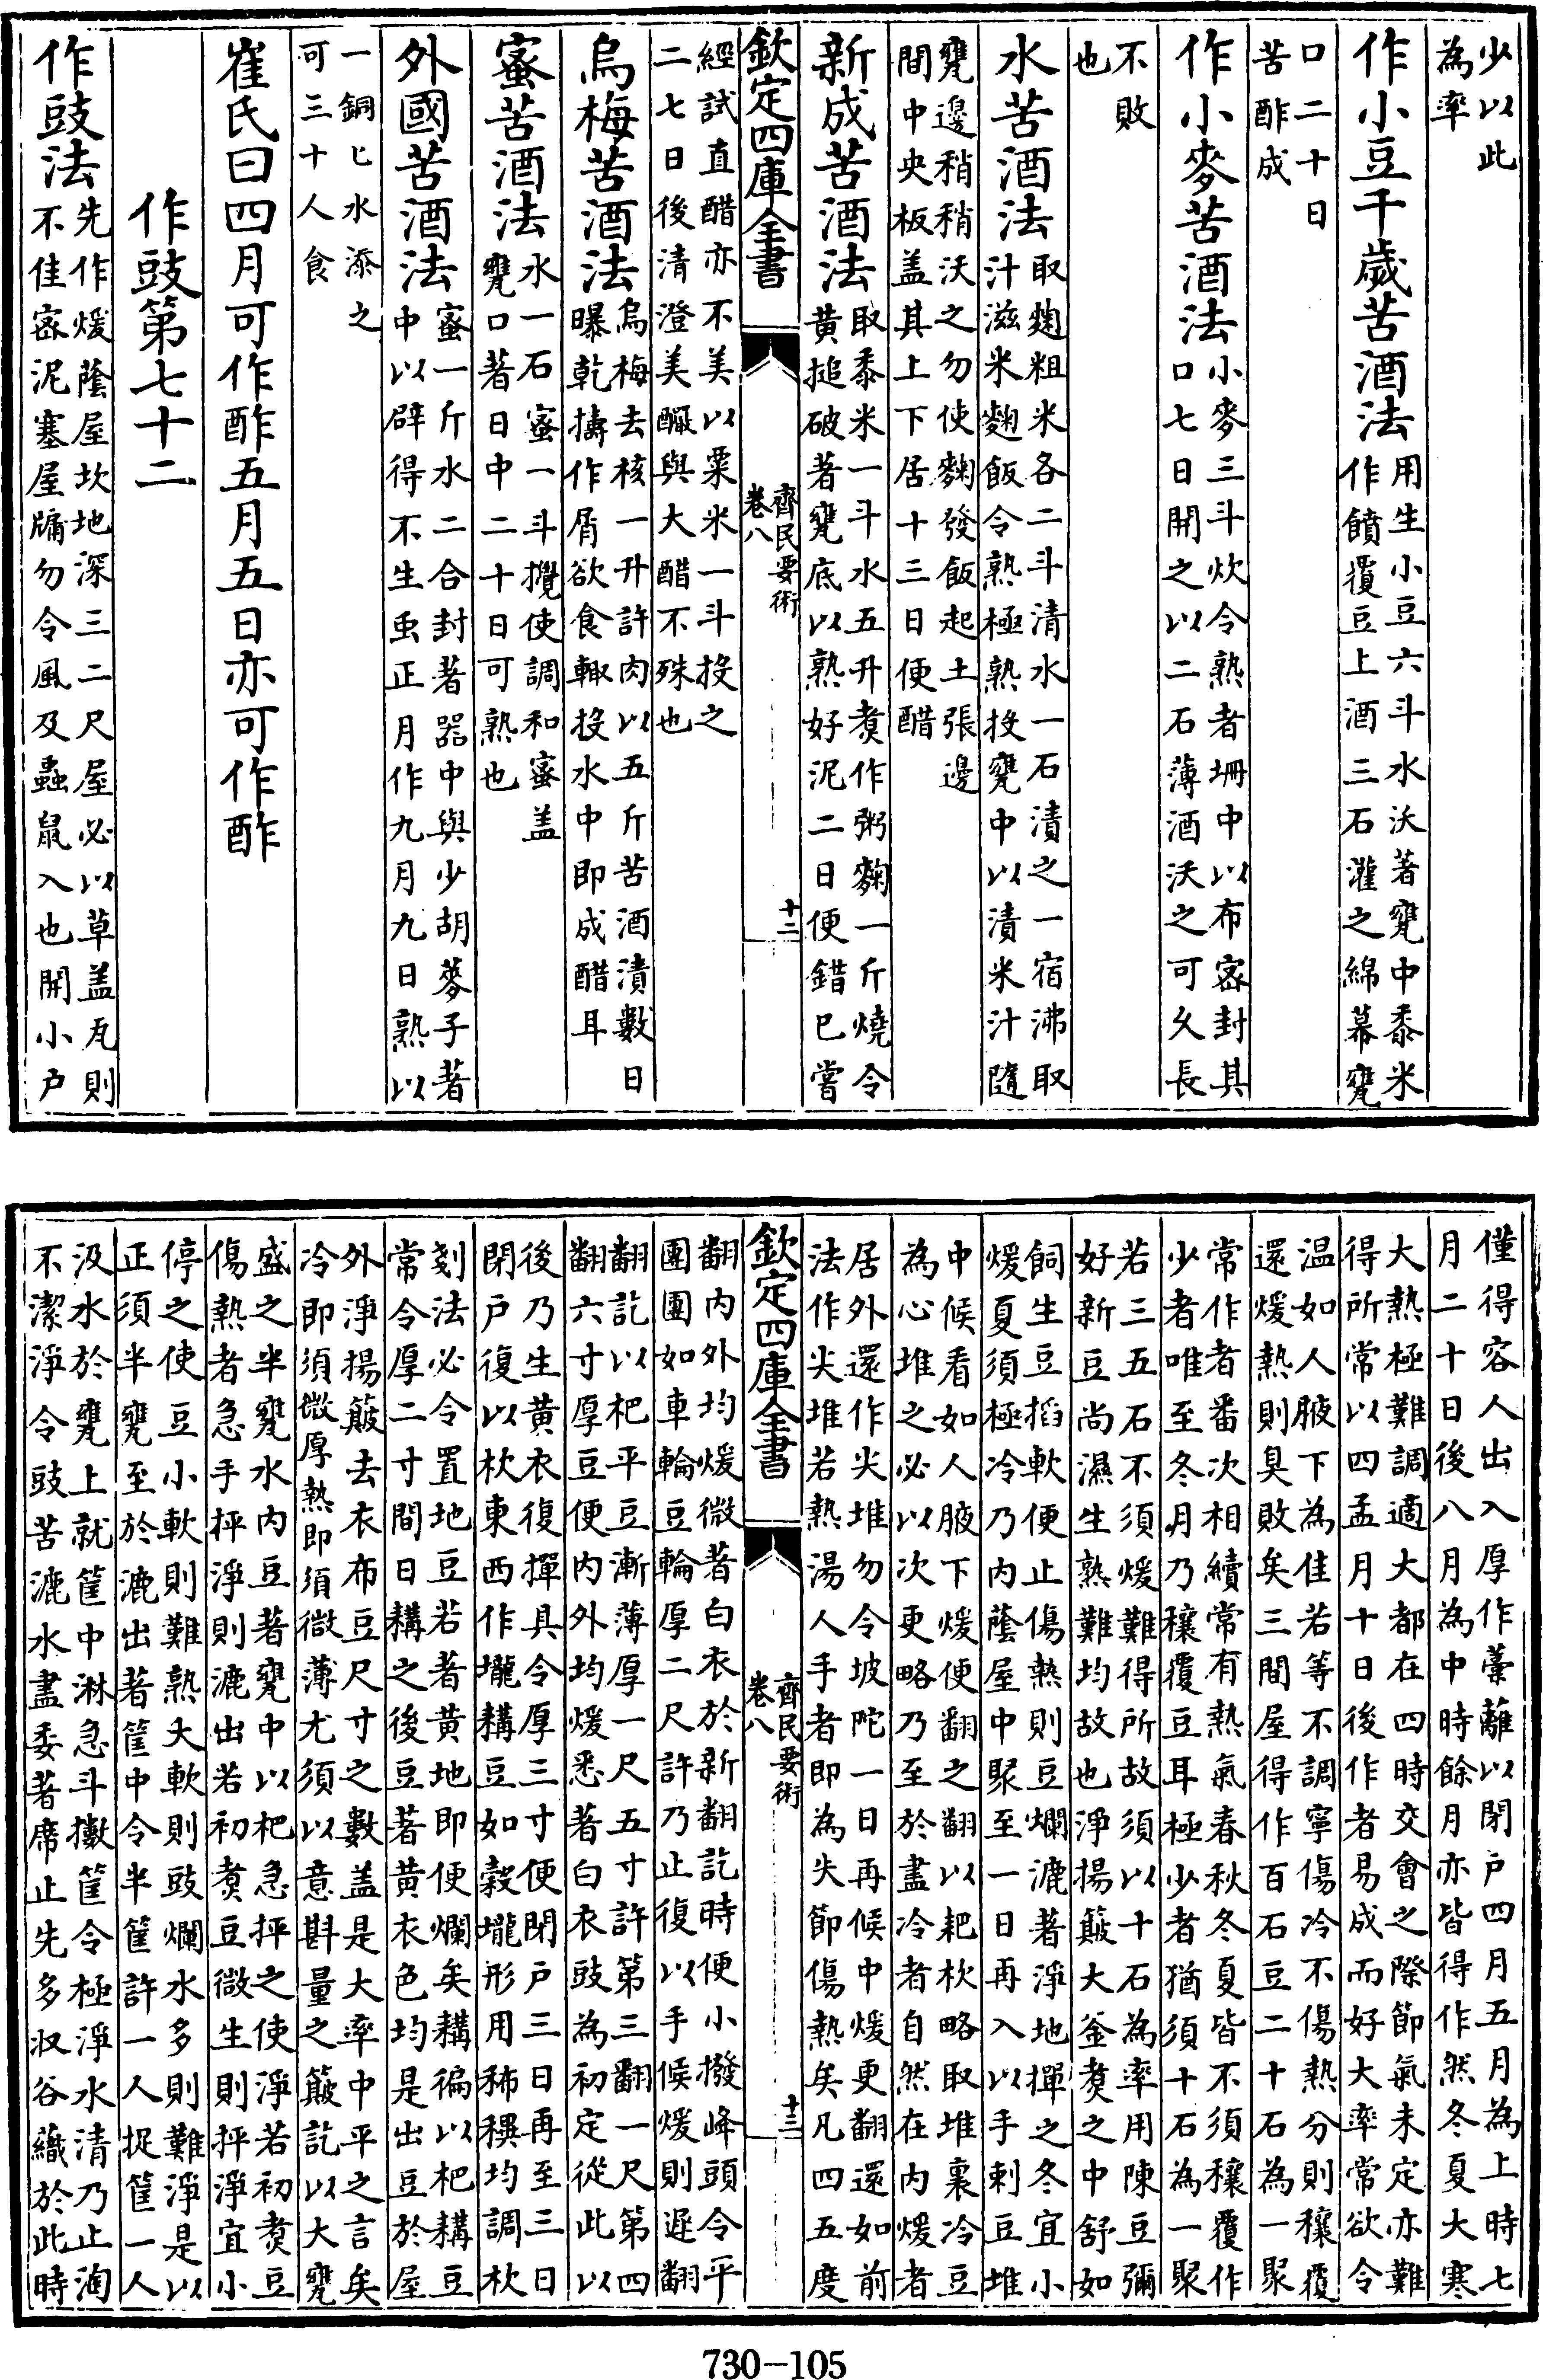 少以此
為率
作小豆千歲苦酒法
用生小豆六斗水沃著甕中黍米
作饙覆豆上酒三石灌之綿幕甕
口二十日
苦酢成
作小麥苦酒法
小麥三斗炊令熟者堈中以布密封其
口七日開之以二石薄酒沃之可久長
不敗
也
水苦酒法
取麴粗米各二斗清水一石漬之一宿沸取
汁滋米麴飯令熟極熟投甕中以漬米汁隨
甕邊稍稍沃之勿使麴發飯起土張邊
間中央板盖其上下居十三日便醋
新成苦酒法
取黍米一斗水五升煑作粥麴一斤燒令
黄搥破著甕底以熟好泥二日便錯巳嘗
欽定四庫全書
齊民要術
卷八
十二
經試直醋亦不美以粟米一斗投之
二七日後清澄美釅與大醋不殊也
烏梅苦酒法
烏梅去核一升許肉以五斤苦酒漬數日
曝乾擣作屑欲食輙投水中即成醋耳
蜜苦酒法
水一石蜜一斗攪使調和蜜盖
甕口著日中二十日可熟也
外國苦酒法
蜜一斤水二合封著器中與少胡荽子著
中以辟得不生虫正月作九月九日熟以
一銅匕水添之
可三十人食
崔氏曰四月可作酢五月五日亦可作酢
作豉第七十二
作豉法
先作煖蔭屋坎地深三二尺屋必以草盖瓦則
不佳密泥塞屋牗勿令風及蟲鼠入也開小户
僅得容人出入厚作藁蘺以閉户四月五月為上時七
月二十日後八月為中時餘月亦皆得作然冬夏大寒
大熱極難調適大都在四時交會之際節氣未定亦難
得所常以四孟月十日後作者易成而好大率常欲令
温如人腋下為佳若等不調寧傷冷不傷熱分則穰覆
還煖熱則臭敗矣三間屋得作百石豆二十石為一聚
常作者番次相續常有熱氣春秋冬夏皆不須穰覆作
少者唯至冬月乃穰覆豆耳極少者猶須十石為一聚
若三五石不須煖難得所故須以十石為率用陳豆彌
好新豆尚濕生熟難均故也淨揚簸大釜煑之中舒如
飼生豆搯軟便止傷熟則豆爛漉著淨地撣之冬宜小
煖夏須極冷乃内蔭屋中聚至一日再入以手刺豆堆
中候看如人腋下煖便翻之翻以耙杴略取堆裏冷豆
為心堆之必以次更略乃至於盡冷者自然在内煖者
居外還作尖堆勿令坡陀一日再候中煖更翻還如前
法作尖堆若熱湯人手者即為失節傷熱矣凡四五度
欽定四庫全書
齊民要術
卷八
十三
翻内外均煖微著白衣於新翻訖時便小撥峰頭令平
團團如車輪豆輪厚二尺許乃止復以手候煖則遲翻
翻訖以杷平豆漸薄厚一尺五寸許第三翻一尺第四
翻六寸厚豆便内外均煖悉著白衣豉為初定從此以
後乃生黄衣復撣具令厚三寸便閉户三日再至三日
閉户復以杴東西作壠耩豆如穀壠形用秫稹均調杴
剗法必令置地豆若著黄地即便爛矣耩徧以杷耩豆
常令厚二寸間日耩之後豆著黄衣色均是出豆於屋
外淨揚簸去衣布豆尺寸之數盖是大率中平之言矣
冷即須微厚熱即須微薄尤須以意斟量之簸訖以大甕
盛之半甕水内豆著甕中以杷急抨之使淨若初煑豆
傷熟者急手抨淨則漉出若初煑豆微生則抨淨宜小
停之使豆小軟則難熟大軟則豉爛水多則難淨是以
正須半甕至於漉出著筐中令半筐許一人捉筐一人
汲水於甕上就筐中淋急斗擻筐令極淨水清乃止淘
不潔淨令豉苦漉水盡委著席止先多收谷䊯於此時
730-105